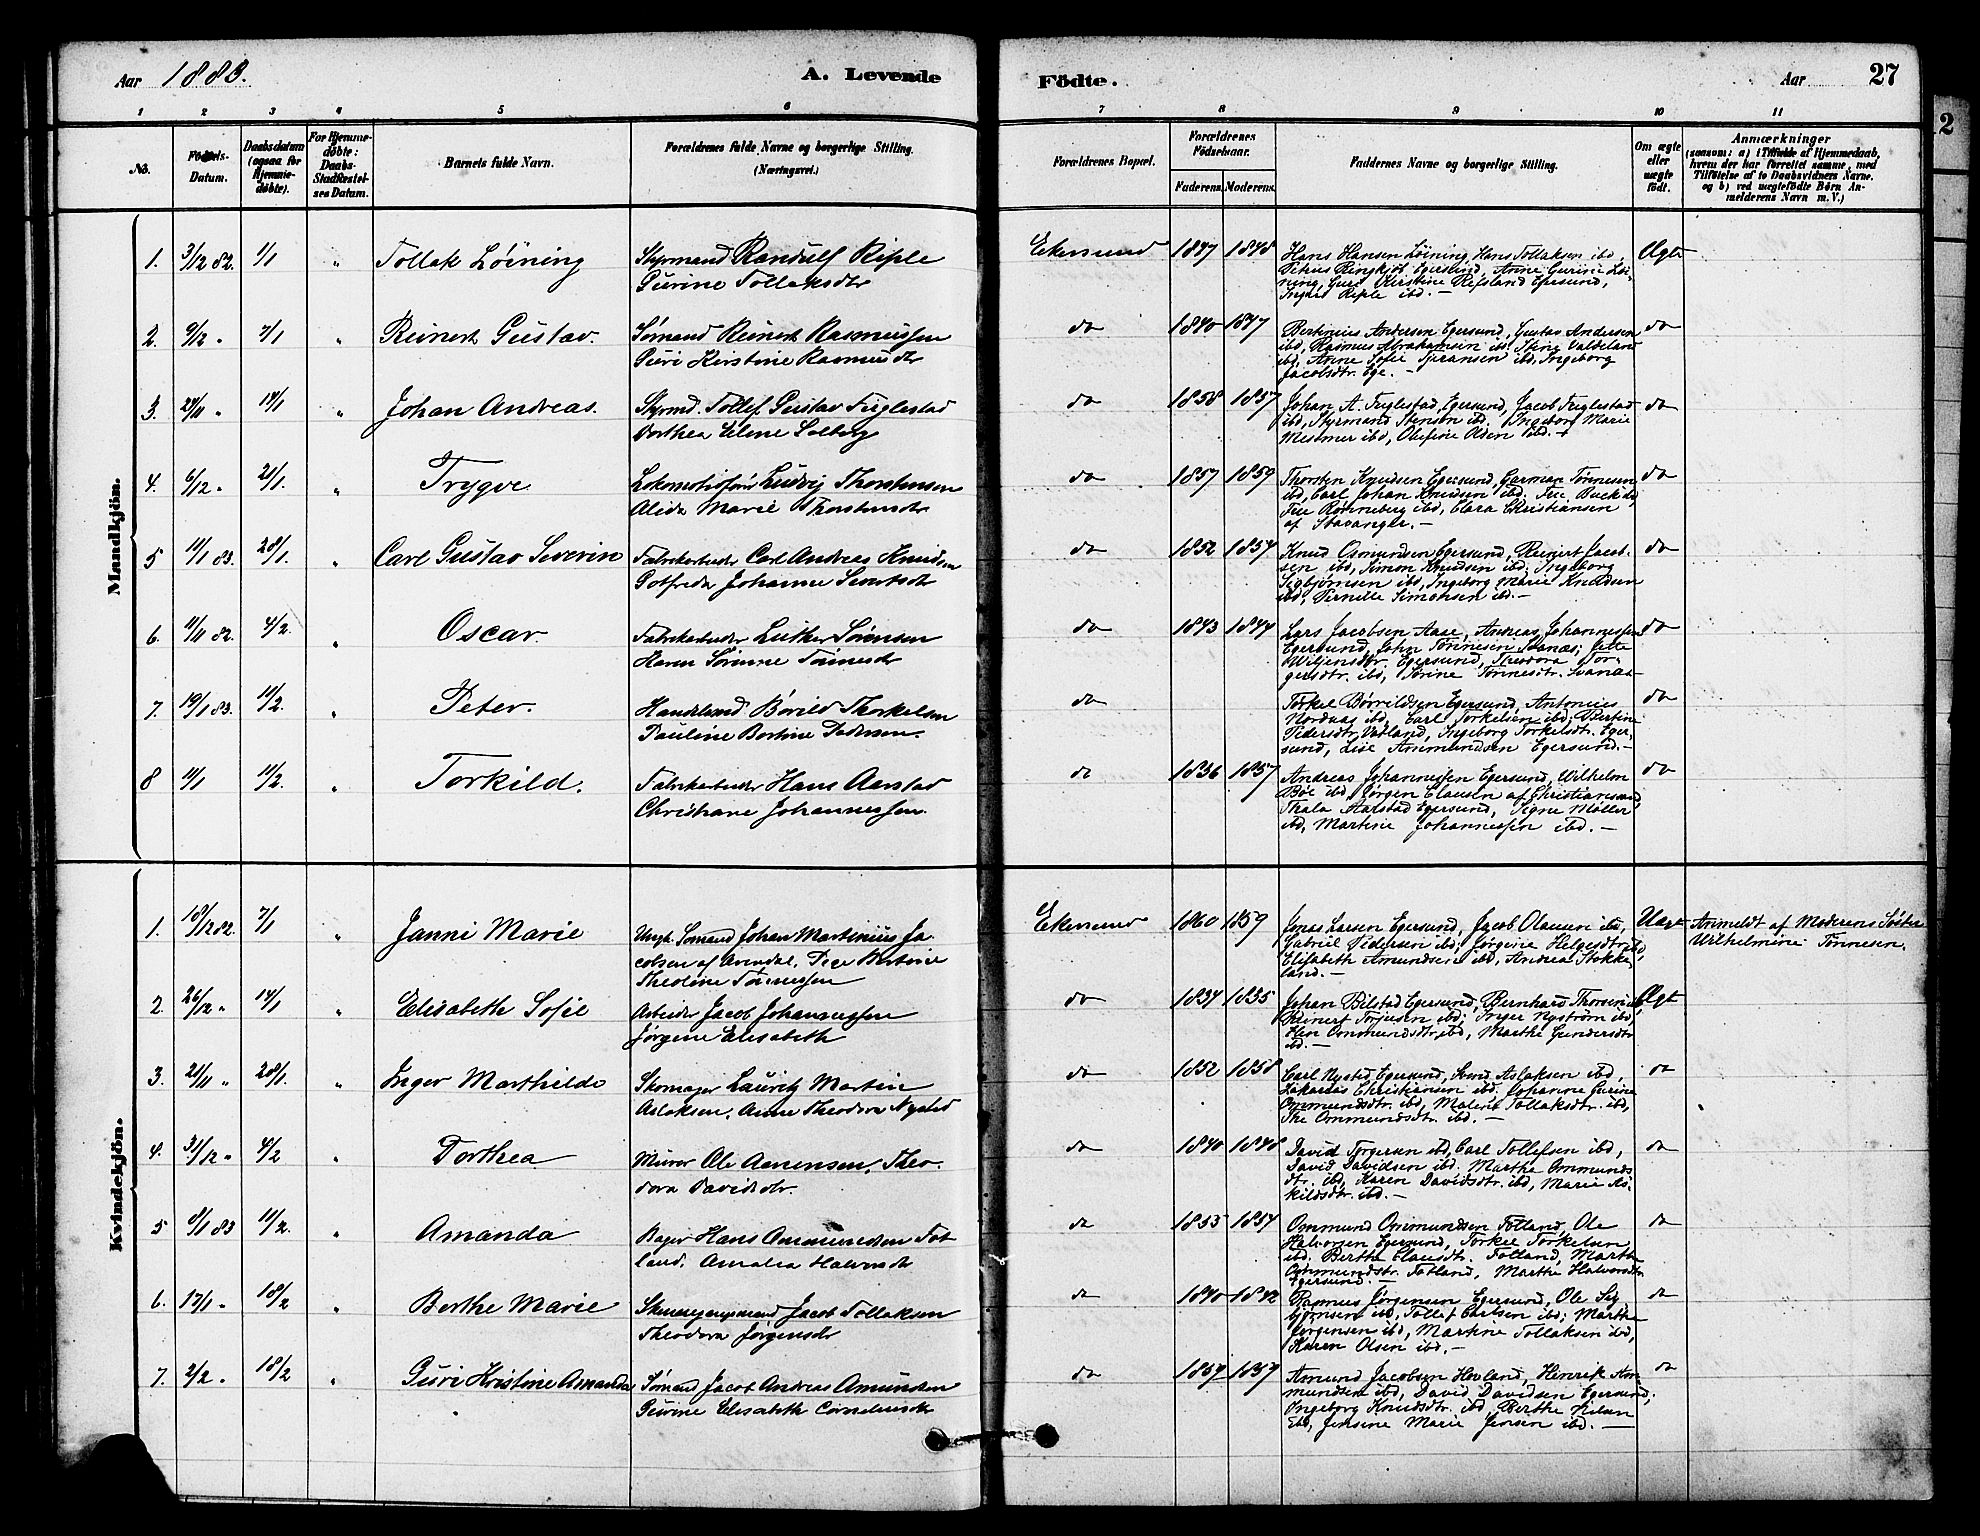 Aar 1883.
A. Levende
Födte.
Aar
27
1 2 3 4 5 6 7 8 9 10 11
No.
Födsels-Datum.
Daabsdatum (ogsaa for Hjemmedöbte).
For Hjemmedöbte: Daabs-Stadfæstelses Datum.
Barnets fulde Navn.
Forældrenes fulde Navne og borgerlige Stilling.
(Næringsvei.)
Forældrenes Bopæl.
Forældrenes Födselsaar.
Faderens. Moderens.
Faddernes Navne og borgerlige Stilling.
Om ægte eller uægte födt.
Anmærkninger
(saasom: a) i Tilfælde af Hjemmedaab, hvem der har forrettet samme, med Tilföielse af to Daabsvidners Navne. og b) ved uægtefödte Börn Anmelderens Navn m. V.)
Mandkjön.
1. 3/12 82. 1/1 " Tollak Löining
Styrmand Randulf Riple
Gurine Tollaksdtr
Ekersund 1847 1848
Hans Hansen Löining, Hans Tollaksen ibd,
Petrus Ringkjöb Egersund, Anne Gurine Löi-
ning, Guri Kirstine Refsland Egersund,
Inger Riple ibd. —
Ægte
2. 9/12 " 7/1 " Reinert Gustav.
Sömand Reinert Rasmussen
Guri Kirstine Rasmusdtr
do 1840 1847
Bertinius Andersen Egersund, Gustav Andersen
ibd, Rasmus Abrahamsen ibd, Stine Valdeland
ibd, Anne Sofie Tjeransen ibd, Ingeborg
Jacobsdtr. Ege. —
do
3. 24/11 " 14/1 " Johan Andreas.
Styrmd. Tollef Gustav Fuglestad
Dorthea Elene Solberg
do 1858 1857
Johan A. Fuglestad, Egersund, Jacob Fuglestad
ibd, Styrmand Stensön ibd. Ingeborg Marie
ibd, Olefine Olsen ibd. —
do
4. 6/12 " 21/1. " Trygve
Ludvig Thorstensen
Alida Marie Thorstensdtr
do 1857 1859
Thorsten Knudsen Egersund, Garman Tönnesen
ibd, Carl Johan Knudsen ibd. Feie
Feie Rönneberg ibd, Clara Christiansen
af Stavanger. —
do
5 11/1 83. 28/1. " Carl Gustav Severin
Fabrikarbeider Carl Andreas Knudsen
Gotfreda Johanne
do 1852 1857
Knud Osmundsen Egersund, Reinert Jacob-
sen ibd, Simon Knudsen ibd; Ingeborg
Sigbjörnsen ibd, Ingeborg Marie Knudsen
ibd, Pernille Simonsen ibd. —
do
6. 11/11 82. 4/2. " Oscar.
Fabrikarbeider Luther Sörensen
Karen Sörine Tönnesdtr
do 1843 1844
Lars Jacobsen Aase, Andreas Johannessen
Egersund, John Tönnesen Svanæs; Jette
Egersund, Theodora Tor-
gersdtr. ibd, Sörine Tönnesdtr. Svanæs —
do
7. 19/1 83. 11/2. " Peter.
Börild Thorkelsen
Pauline Bertine Pedersen.
do
Torkel Börrildsen Egersund, Antonius
Nordaas ibd, Carl Torkelsen ibd; Bertine
Pedersdtr. Vatland, Ingeborg Torkelsdtr. Eger-
sund, Lise Ammundsen Egersund. —
do
8 11/1 11/2. " Torkild.
Fabrikarbeider Hans Aarstad
Christiane Johannessen.
do 1836 1837
Andreas Johannessen Egersund, Wilhelm
Böe ibd, Jörgen Clausen af Christianssand
Thala Aarstad Egersund, Signe Möller
ibd, Martine Johannessen ibd. —
do
Kvindekjön.
1. 18/12 82. 7/1 " Janni Marie
Ungk. Sömand Johan Martinius Ja-
cobsen af Arendal, Pige Bertine
Theoline Tönnessen
Ekersund 1860 1859
Jonas Larsen Egersund, Jacob Olausen ibd,
Gabriel Pedersen ibd; Jörgine Helgesdtr. ibd,
Elisabeth Amundsen ibd, Andrea Stokke-
land. —
Uægt
Anmeldt af Moderens Söster
Wilhelmine Tönnesen.
2. 26/12 " 14/1 " Elisabeth Sofie
Arbeider Jacob Johannessen
Jörgine Elisabeth
do 1834 1835
Johan Bilstad Egersund, Bernhard Thorsen ibd
Reinert Torjusen ibd; Inger Nyström ibd,
Ommundsdtr. ibd, Marthe Gundersdtr.
ibd. —
Ægt
3. 21/11 " 28/1. " Inger Marthilde
Skomager Lauritz Martin
Aslaksen, Anne Theodora Nysted
do 1852 1858
Carl Nysted Egersund, Svend Aslaksen ibd,
Zakarias Christiansen ibd. Johanne Gurine
Ommundsdtr. ibd, Malene Tollaksdtr. ibd,
Ommundsdtr. ibd. —
do
4. 31/12 " 4/2 " Dorthea
Murer Ole Aanensen, Theo-
dora Davidsdtr.
do 1840 1848
David Torgersen ibd, Carl Tollefsen ibd,
David Davidsen ibd. Marthe Ommunds-
dtr. ibd, Karen Davidsdtr. ibd, Marie As-
kildsdtr. ibd. —
do
5 8/1 83 11/2. " Amanda
Bager Hans Ommundsen Fot-
land. Amalia Halvorsdtr
do 1855 1854
Ommund Ommundsen Fotland, Ole
Halvorsen Egersund, Torkel Torkelsen
ibd. Berthe Clausdtr. Fotland, Marthe
Ommundsdtr. Fotland, Marthe Halvorsdtr.
Egersund. —
do
6. 17/1 " 18/2 " Berthe Marie
Jacob Tollaksen
Theodora Jörgensdtr
do 1840 1842
Rasmus Jörgensen Egersund, Ole Sig-
björnsen ibd, Tollef Carlsen ibd; Marthe
Jörgensen ibd, Martine Tollaksen ibd,
Karen Olsen ibd. —
do
7. 2/2 " 18/2 " Guri Kristine Amanda
Sömand Jacob Andreas Amundsen
Gurine Elisabeth Corneliusdtr
do 1857 1857
Amund Jacobsen Hovland, Henrik Am-
mundsen ibd, David Davidsen Egersund;
Ingeborg Knudsdtr. ibd, Berthe
Jensine Marie Jensen ibd. —
do